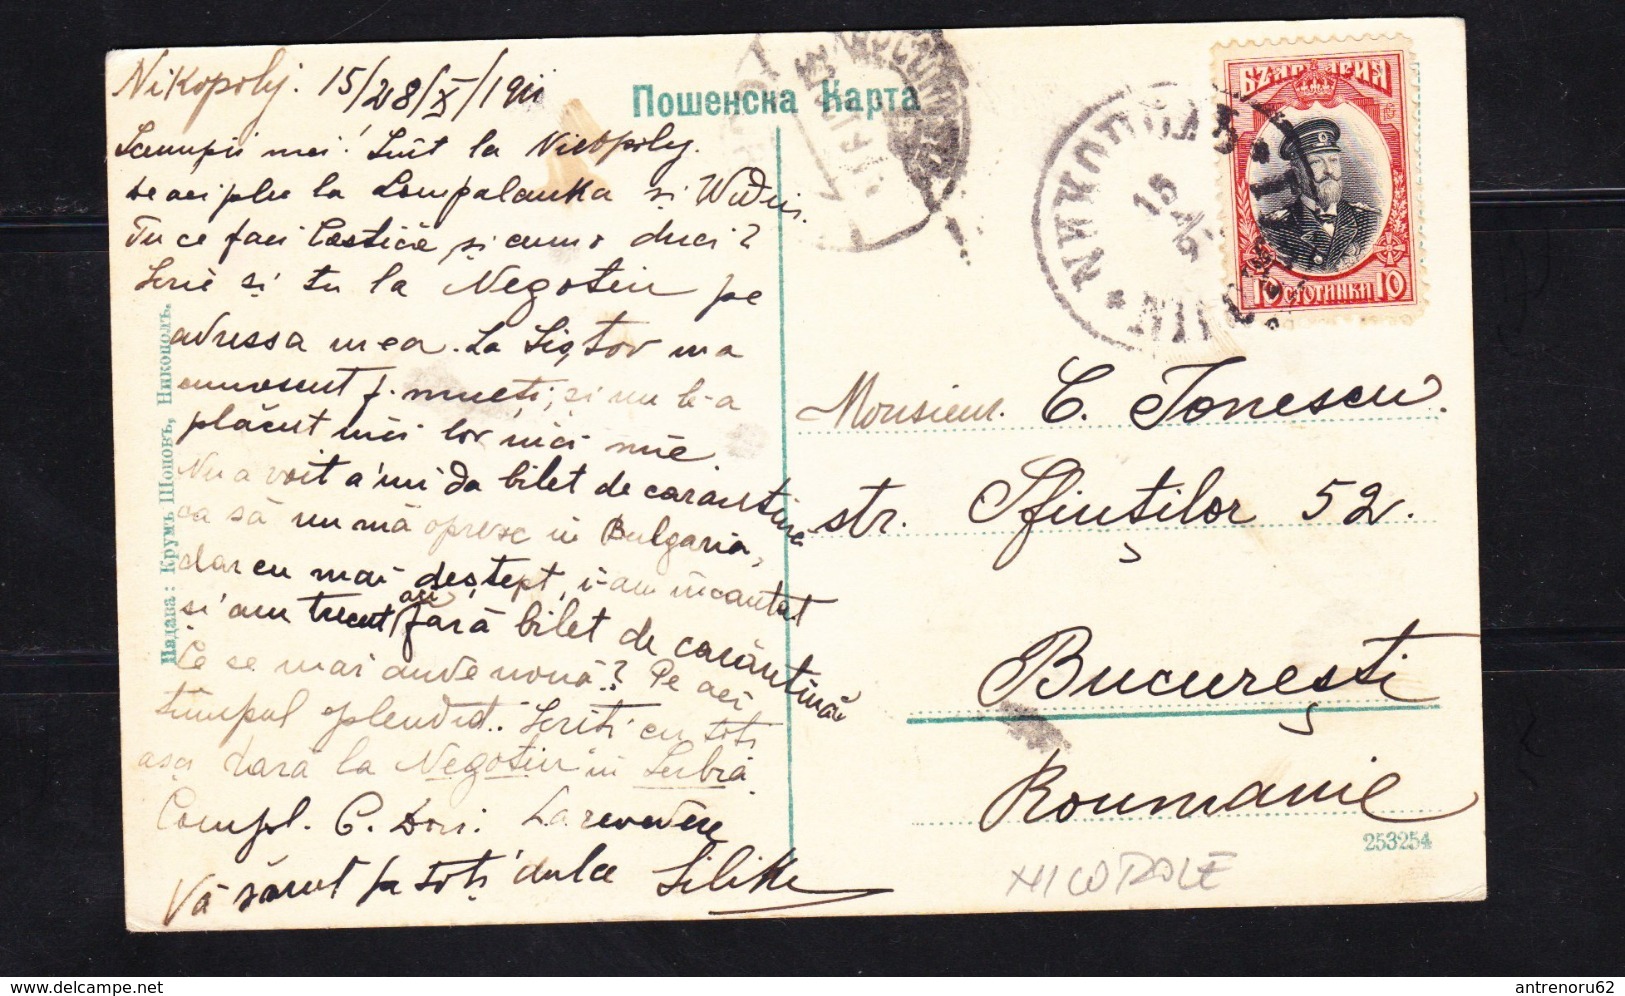 Пошенска Карта
Nikopoly. 15/28/X/1911
mei! Sint la Nicopoly.
la Lompalanka și Widin.
Tu ce faci Costică, și cum o duci?
Scrie și tu la Negotin pe
adressa mea. La Siștov m'a
cunoscut f. mulți, și nu le-a
plăcut nici lor nici mie.
Nu a voit a'mi da bilet de carantină
ca să nu mă opresc în Bulgaria,
dar eu mai deștept, i-am încantat
și'am trecut aci fără bilet de carăntină
Ce se mai aude nouă? Pe aci
timpul splendid.. Scriți cu toți
așa dară la Negotin în Serbia
Compl. C. Dori. La revedere
Vă sărut pe toți dulce
Издава: Крумъ Шоповъ, Никополъ.
БЪЛГАРИЯ
10 СТОТИНКИ 10
НИКОПОЛЪ
15
Monsieur. C. Ionescu.
str. Sfinților 52.
București
Roumanie
253254
NICOPOLE
http://www.delcampe.net
antrenoru62